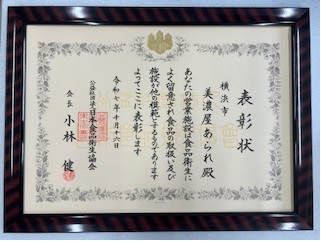 表彰状
横浜市
美濃屋あられ殿
あなたの営業施設は食品衛生に
よく留意され食品の取扱い及び
施設が他の模範とするものであります
よってここに表彰します
令和七年十月十六日
公益社団法人日本食品衛生協会
会長 小林 健